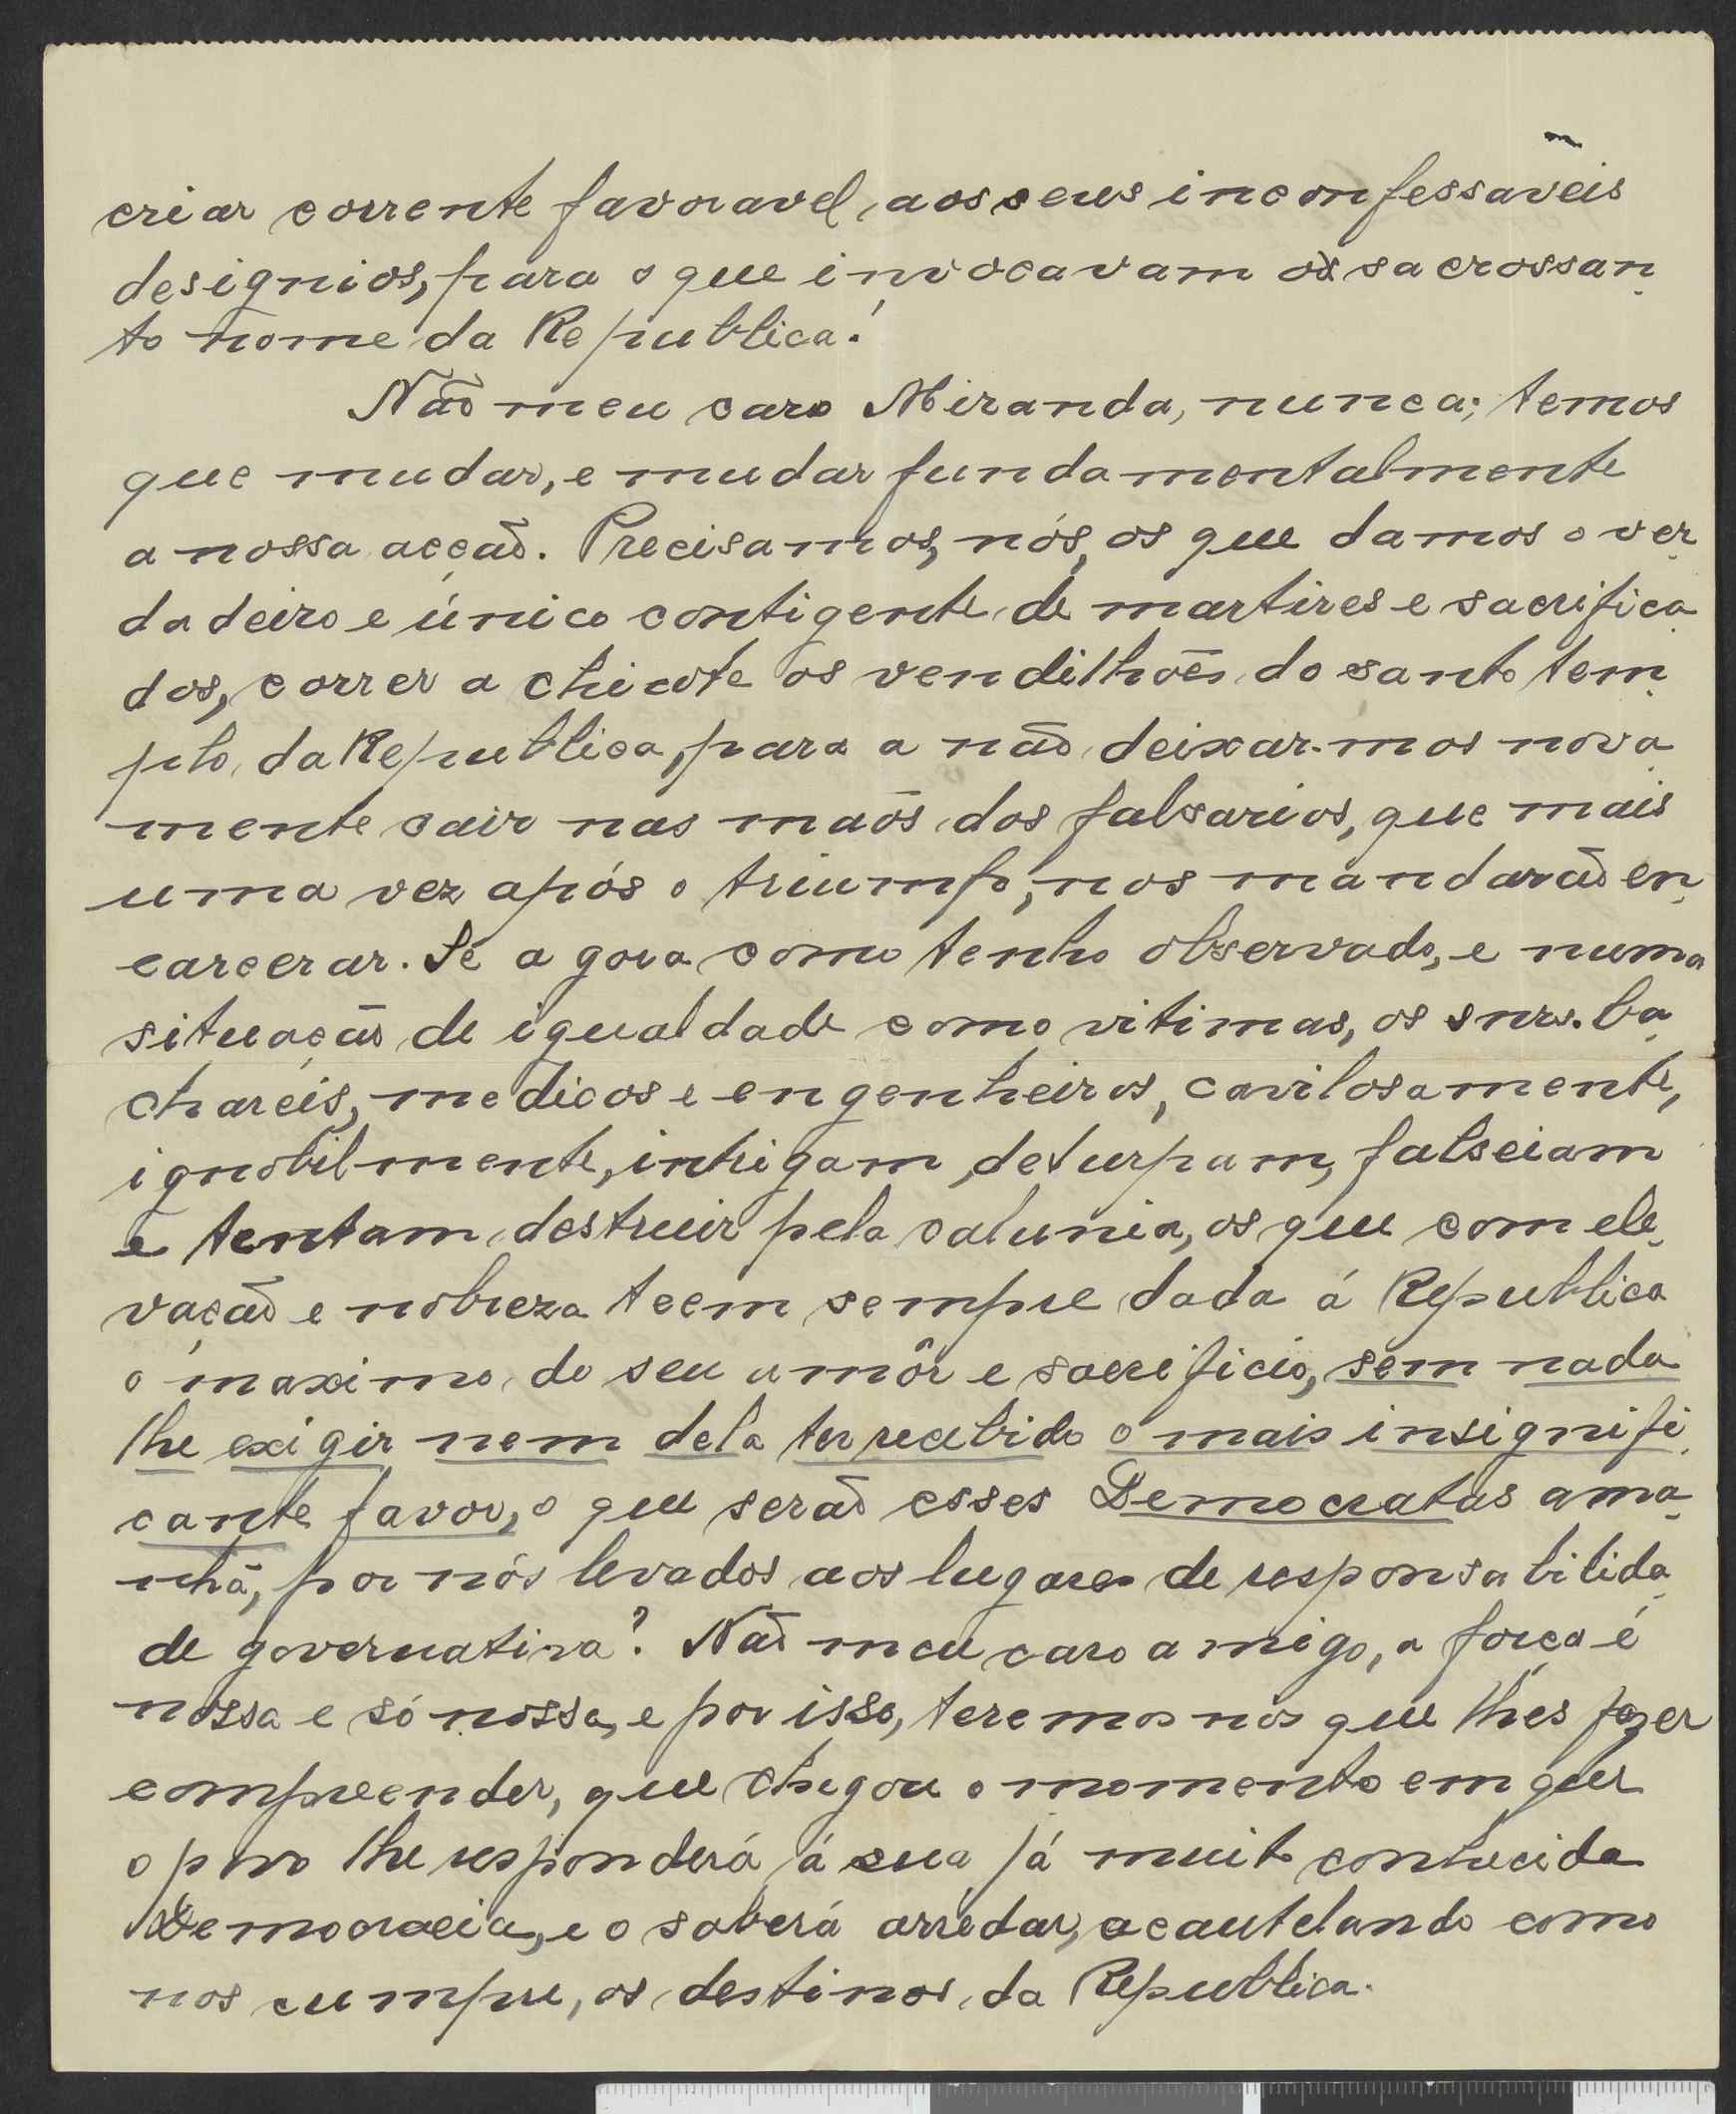 criar corrente favoravel, aos seus inconfessaveis
designios, para o que invocavam o sacrossan-
to nome da Republica!
Não meu caro Miranda, nunca; temos
que mudar, e mudar fundamentalmente
a nossa acção. Precisamos, nós, os que damos o ver-
dadeiro e único contigente, de martires e sacrifica-
dos, correr a chicote os vendilhões do santo tem-
plo, da Republica, para a não deixar-mos nova-
mente cair nas mãos dos falsarios, que mais
uma vez após o triumfo, nos mandarão en-
carcerar. Se agora como tenho observado, e numa
situação de igualdade como vitimas, os snrs. ba-
chareis, medicos e engenheiros, cavilosamente,
ignobilmente, intrigam, deturpam, falseiam
e tentam, destruir pela calunia, os que com ele-
vação e nobreza teem sempre dada á Republica
o maximo do seu amôr e sacrificio, sem nada
lhe exigir nem dela ter recebido o mais insignifi-
cante favor, o que serão esses Democratas ama-
nhã, por nós levados aos lugares de responsabilida-
de governativa? Não meu caro amigo, a força é
nossa e só nossa, e por isso, teremos nós que lhes fazer
compreender, que chegou o momento em que
o povo lhe responderá á sua já muito conhecida
Democracia, e o saberá arredar, acautelando como
nos cumpre, os destinos, da Republica.